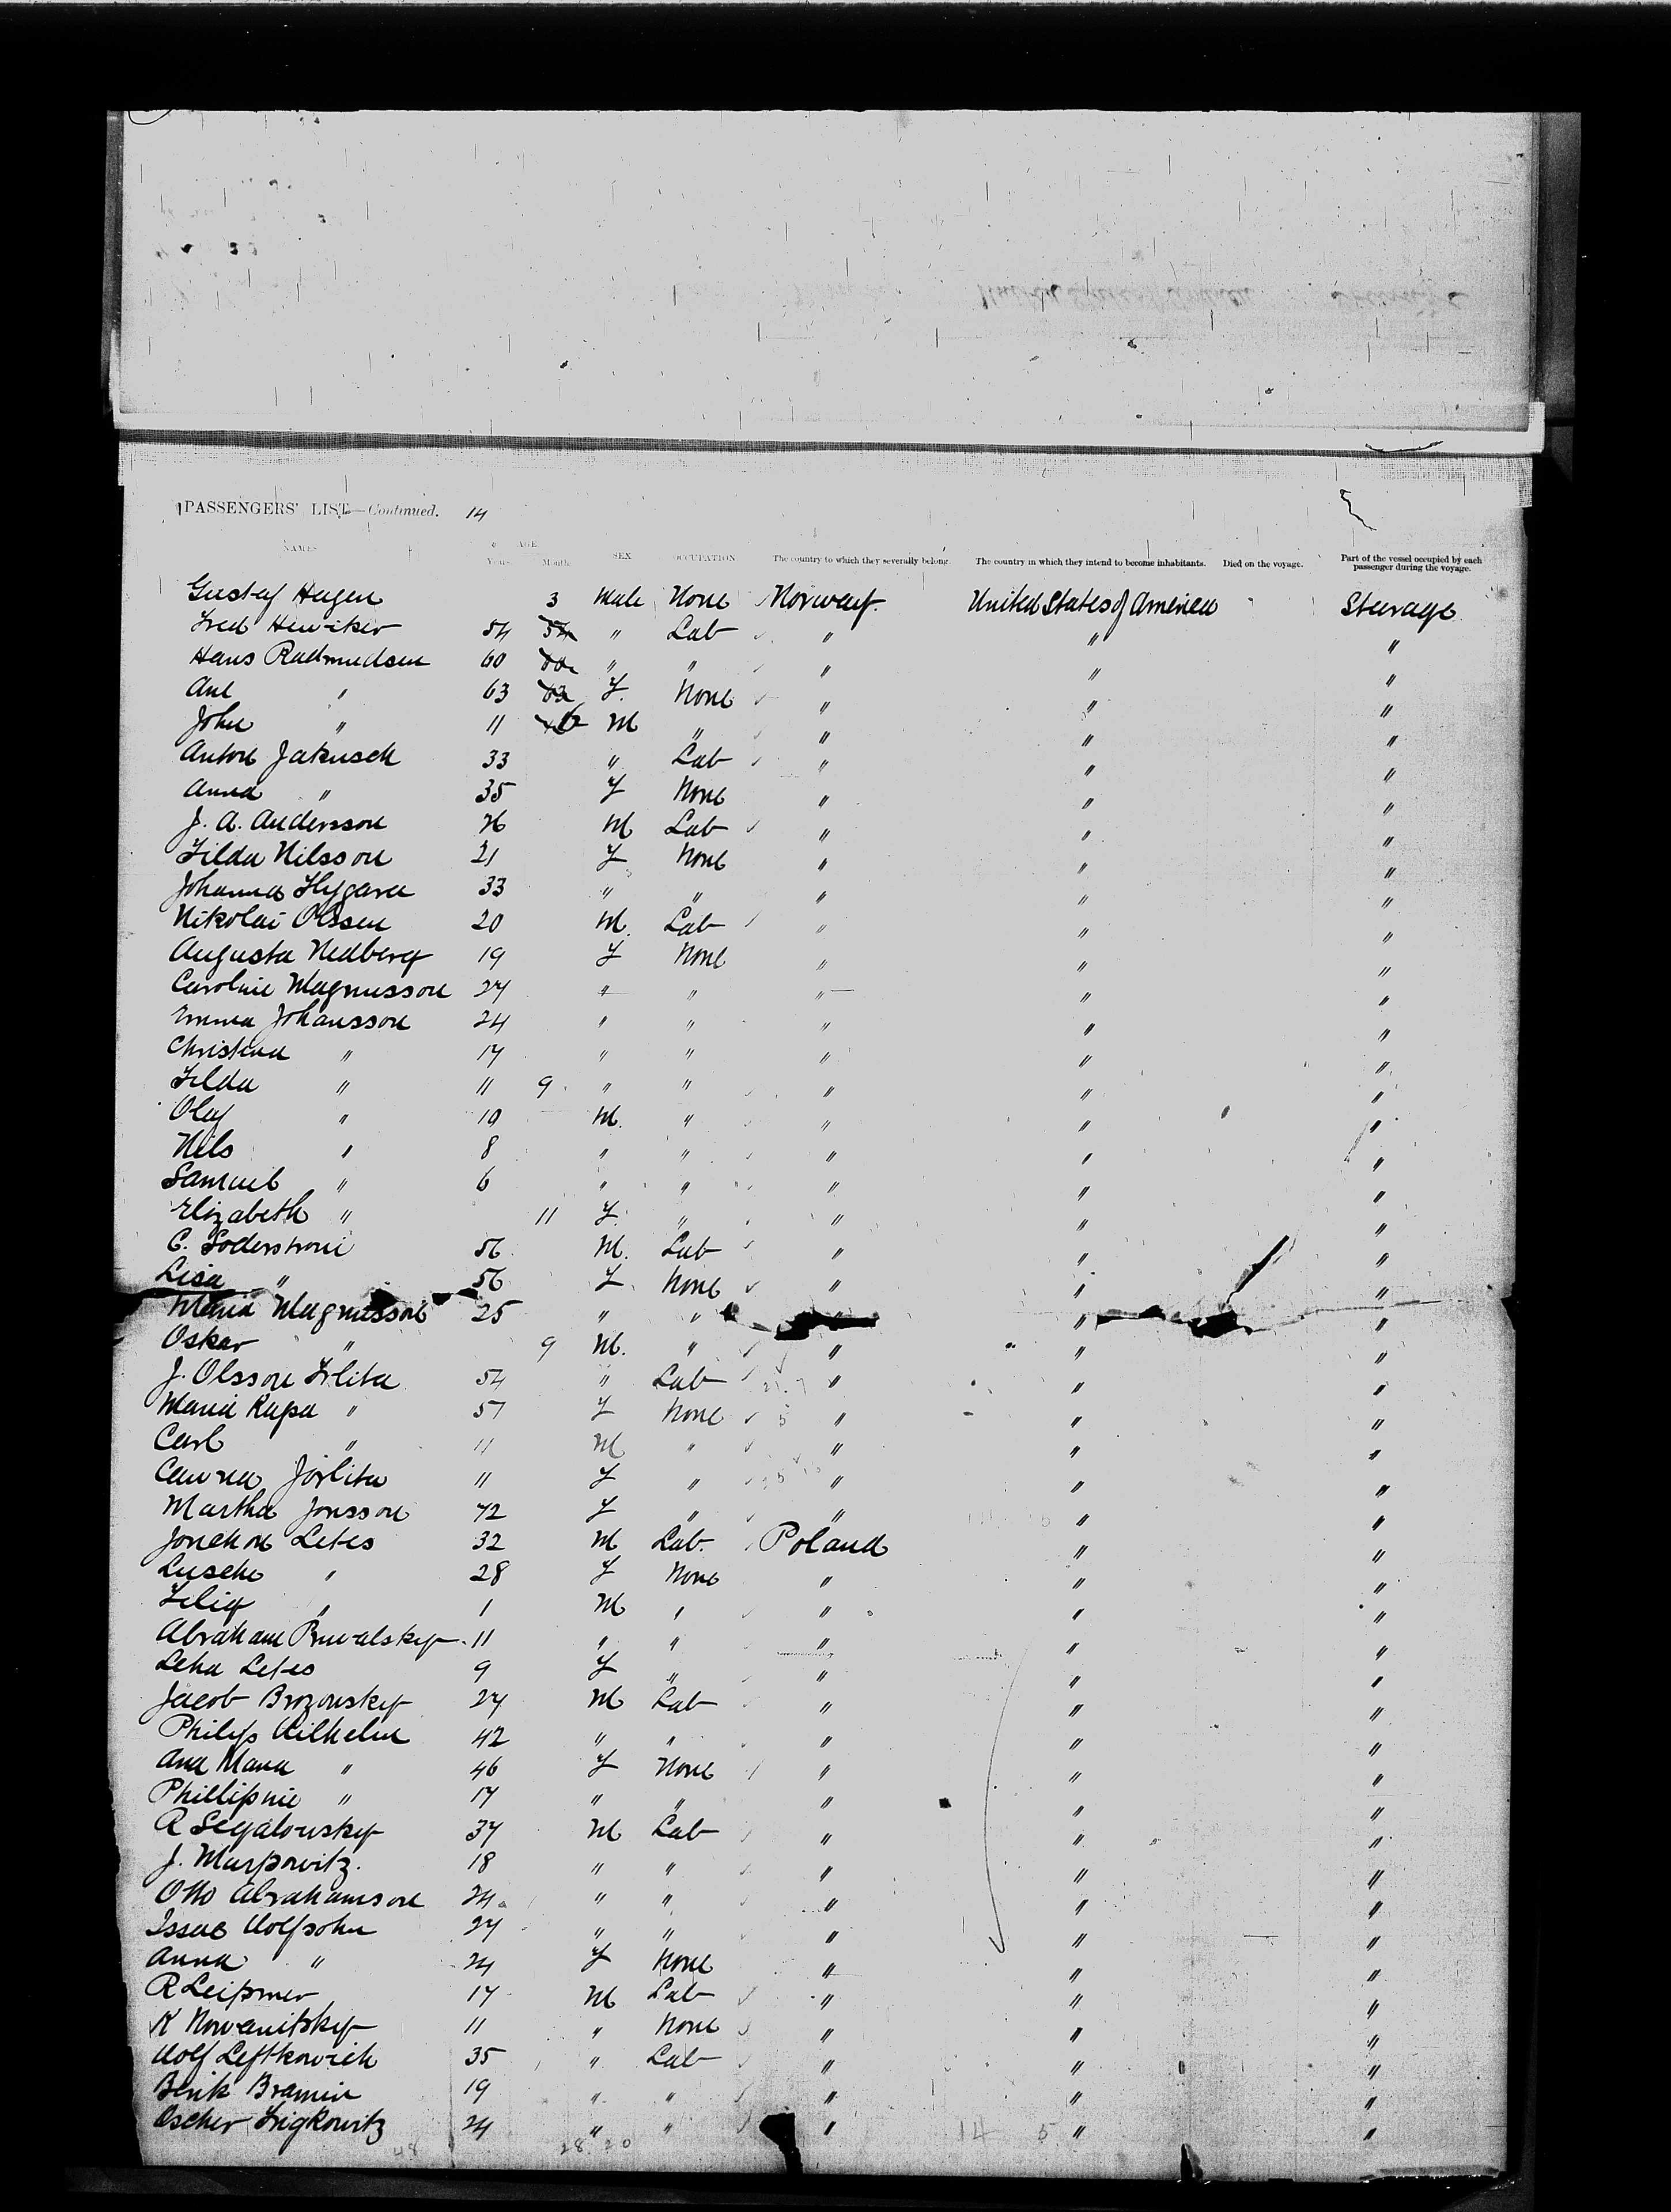 PASSENGERS' LIST—Continued. 14
NAMES AGE Years Month SEX OCCUPATION The country to which they severally belong. The country in which they intend to become inhabitants. Died on the voyage. Part of the vessel occupied by each passenger during the voyage.
Gustaf Hagen 3 Male None Norway United States of America Steerage
Fred 54 54 " Lab " " "
Hans Radmudsen 60 60 " " " " "
Ane " 63 63 F. None " " "
John " 11 M " " " "
Anton Jakusch 33 " Lab " " "
Anna " 35 F None " " "
J. A. Andersson 26 M Lab " " "
Tilda Nilsson 21 F None " " "
Johanna 33 " " " " "
Nikolai Olssen 20 M. Lab " " "
Augusta Nedberg 19 F None " " "
Caroline Magnusson 27 " " " " "
Emma Johansson 24 " " " " "
Christina " 17 " " " " "
Tilda " 11 9 " " " " "
Olaf " 10 M. " " " "
Nils " 8 " " " " "
Samuel " 6 " " " " "
Elizabeth " 11 F. " " " "
C. Soderstrom 56 M. Lab " " "
Lisa " 56 F None " " "
Maria Magnusson 25 " " " " "
Oskar " 9 M. " " " "
J. Olsson 54 " Lab " " "
Maria Kapa " 57 F None " " "
Carl " 11 M " " " "
11 F " " " "
Martha Jonsson 72 F " " " "
Letes 32 M Lab. Poland " "
Lusche " 28 F None " " "
" 1 M " " " "
Abraham 11 " " " " "
Leha Letes 9 F " " " "
Jacob Brozonsky 27 M Lab " " "
Philip Wilhelm 42 " " " " "
Ana Maria " 46 F None " " "
Phillipine " 17 " " " " "
R Segalowsky 37 M Lab " " "
J. 18 " " " " "
Otto Abrahamson 24 " " " " "
Issac Wolfsohn 27 " " " " "
Anna " 24 F None " " "
R 17 M Lab " " "
K Nowanitsky 11 " None " " "
Wolf Leftkovich 35 " Lab " " "
Berik Bramin 19 " " " " "
Ascher 24 " " " " "
48 28 20 14 5